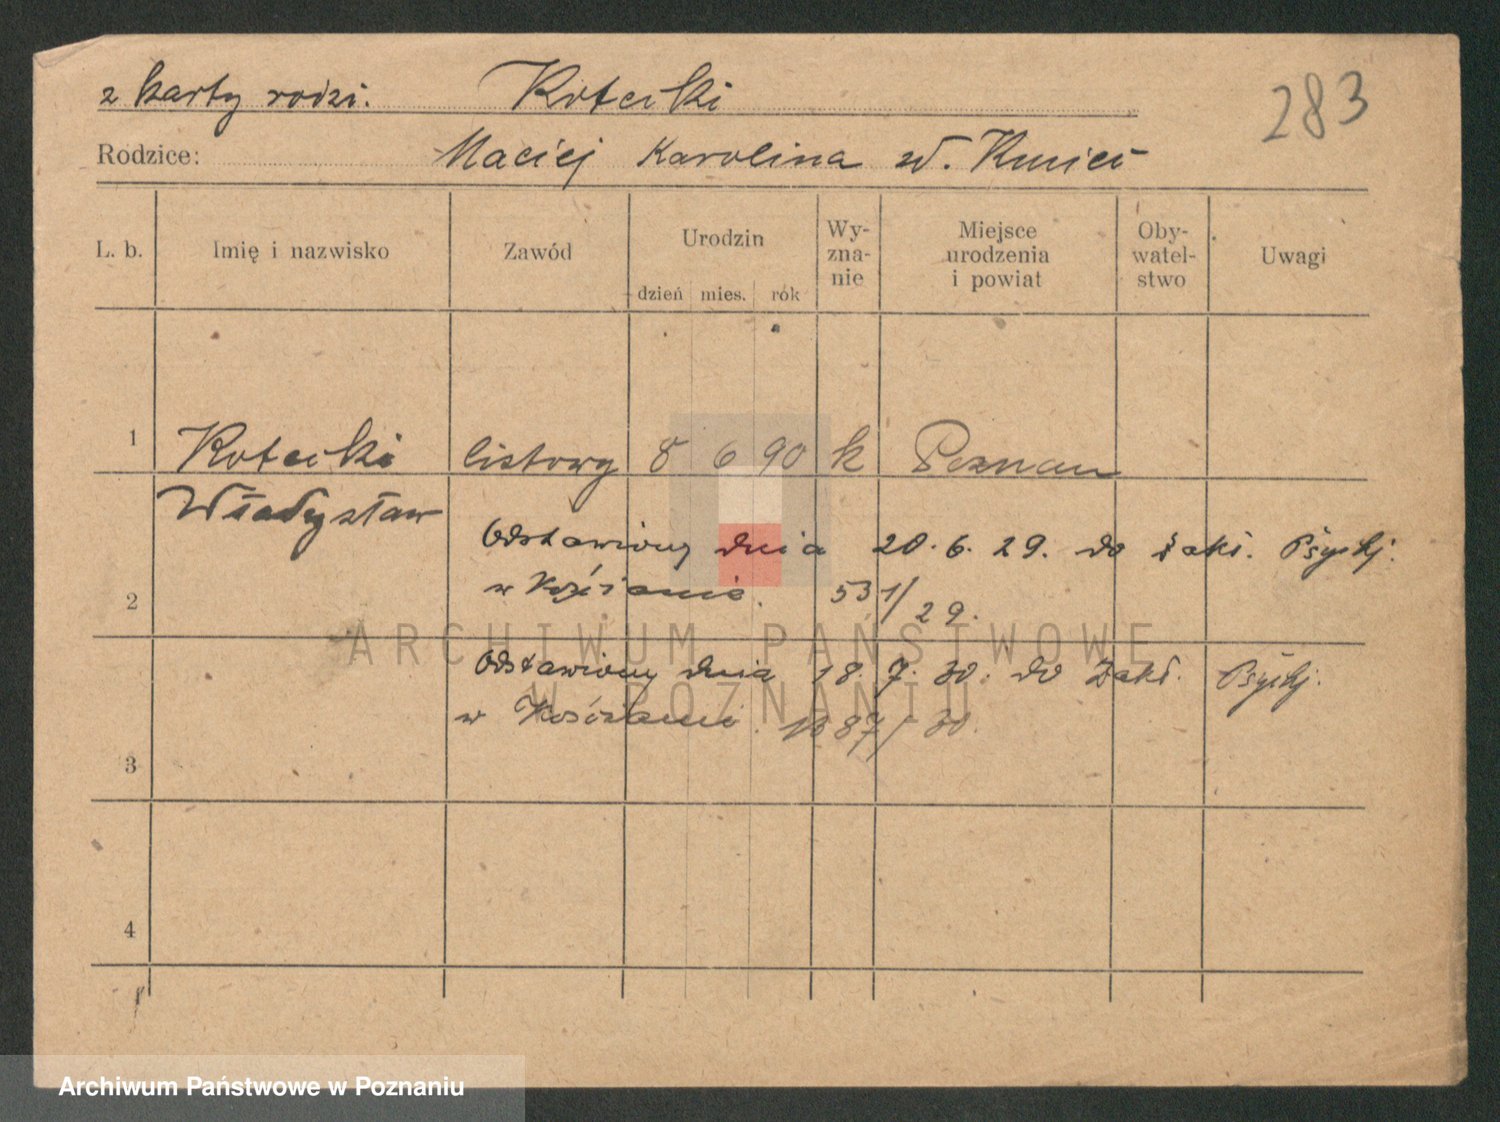 z karty rodzi. Kotecki
283
Rodzice: Maciej Karolina zd. Kmieć
L. b. Imię i nazwisko Zawód Urodzin Wy-zna-nie Miejsce urodzenia i powiat Oby-watel-stwo Uwagi
dzień mies. rok
1 Kotecki listowy 8 6 90 k Poznań
Władysław
Odstawiony dnia 20. 6. 29. do Zakł. Psych.
2 w Kościanie. 531/29.
ARCHIWUM PAŃSTWOWE
Odstawiony dnia 18. 7. 30. do Zakł. Psych.
W POZNANIU
w Kościanie. 87/30.
3
4
Archiwum Państwowe w Poznaniu